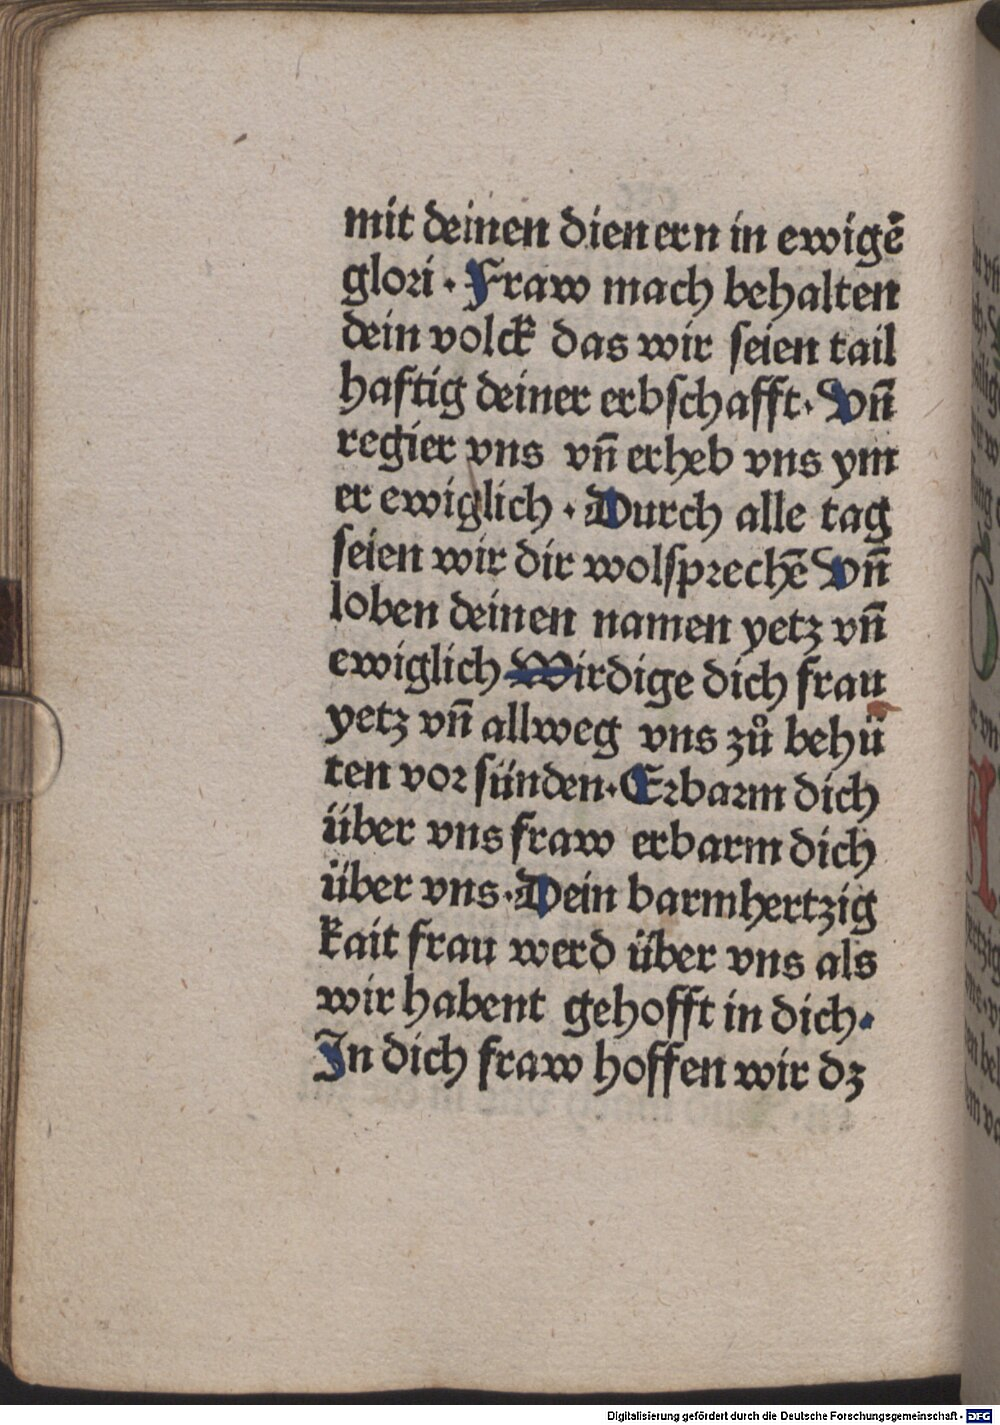 mit deinen dienern in ewigē
glori · Fraw mach behalten
dein volck das wir seien tail
haftig deiner erbschafft · Vn̄
regier vns vn̄ erheb vns ym
er ewiglich · Durch alle tag
seien wir dir wolsprechē Vn̄
loben deinen namen yetz vn̄
ewiglich Wirdige dich frau
yetz vn̄ allweg vns zů behü
ten vor sünden · Erbarm dich
über vns fraw erbarm dich
über vns · Dein barmhertzig
kait frau werd über vns als
wir habent gehofft in dich ·
In dich fraw hoffen wir dz
Digitalisierung gefördert durch die Deutsche Forschungsgemeinschaft - DFG